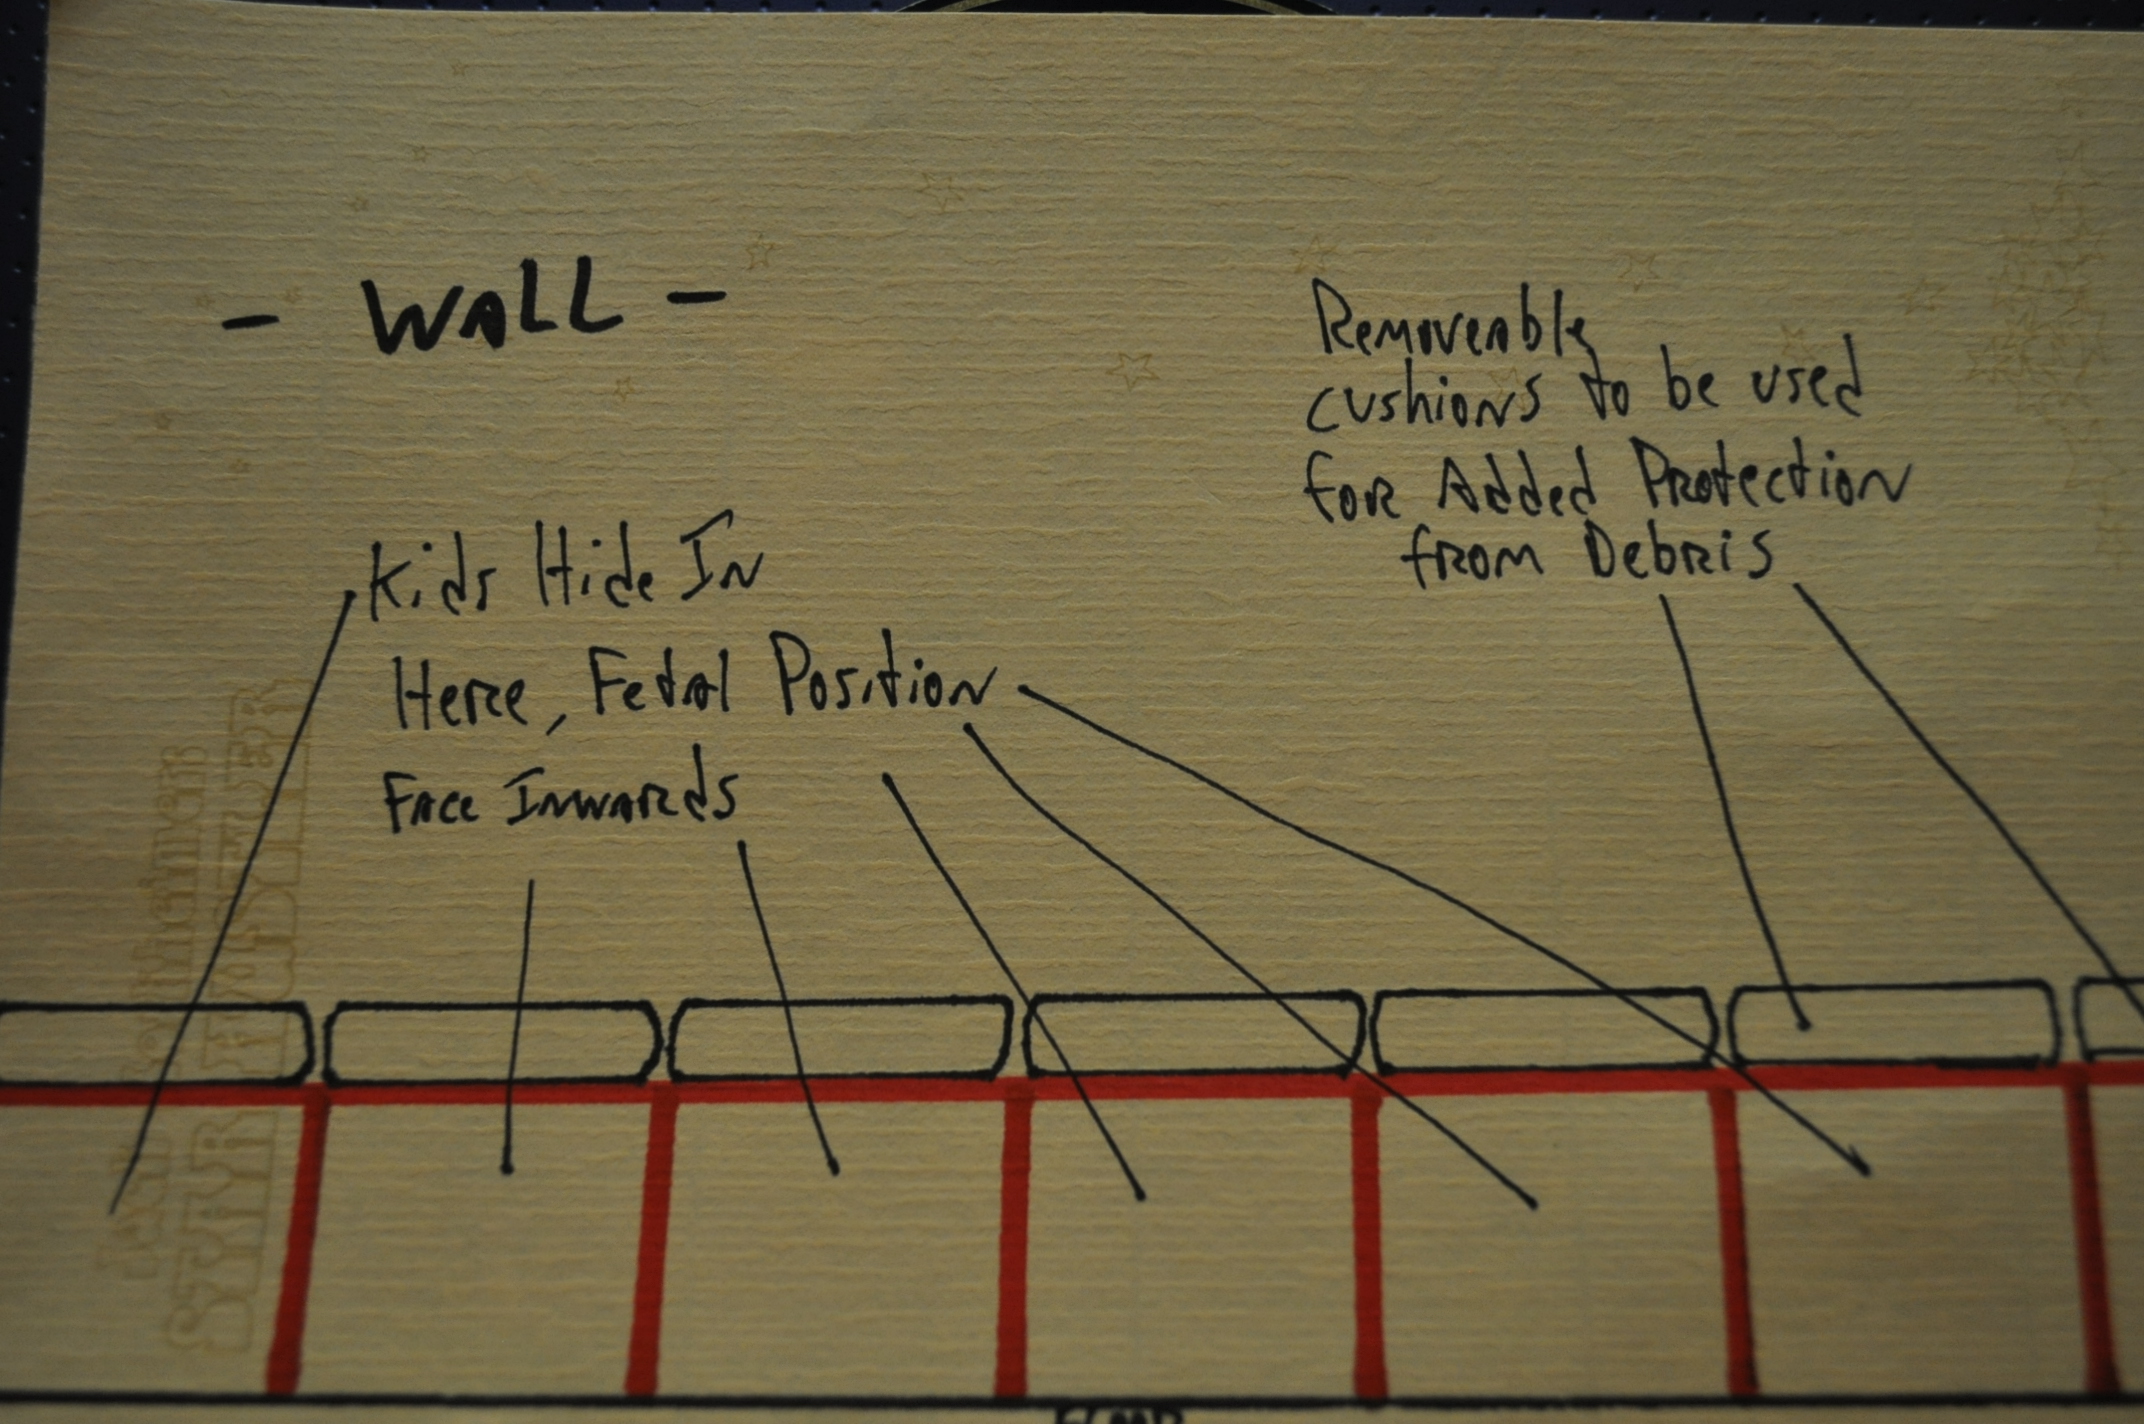 - WALL -
Kids Hide In
Here, Fetal Position
Face Inwards
Removeable
cushions to be used
for Added Protection
from Debris